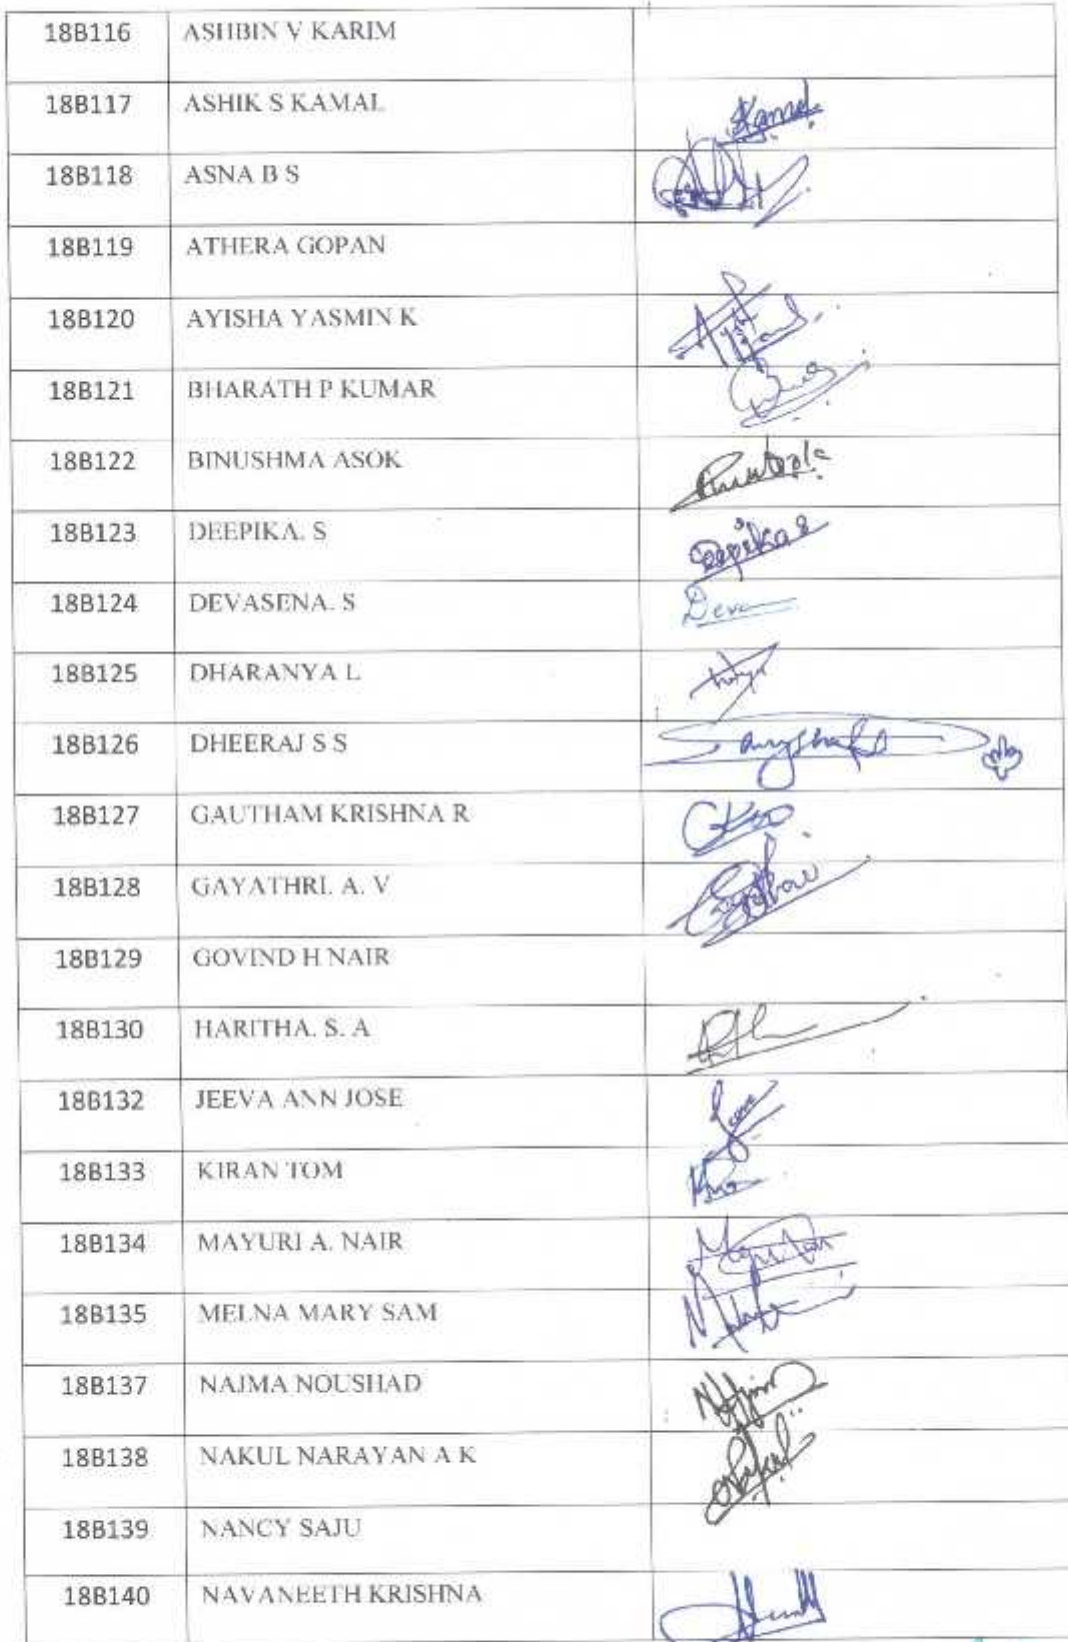 18B116 ASHBIN V KARIM
18B117 ASHIK S KAMAL Kamal
18B118 ASNA B S
18B119 ATHERA GOPAN
18B120 AYISHA YASMIN K
18B121 BHARATH P KUMAR
18B122 BINUSHMA ASOK
18B123 DEEPIKA. S Deepika S
18B124 DEVASENA. S Deva
18B125 DHARANYA L
18B126 DHEERAJ S S
18B127 GAUTHAM KRISHNA R
18B128 GAYATHRI. A. V
18B129 GOVIND H NAIR
18B130 HARITHA. S. A
18B132 JEEVA ANN JOSE
18B133 KIRAN TOM
18B134 MAYURI A. NAIR
18B135 MELNA MARY SAM
18B137 NAJMA NOUSHAD
18B138 NAKUL NARAYAN A K
18B139 NANCY SAJU
18B140 NAVANEETH KRISHNA